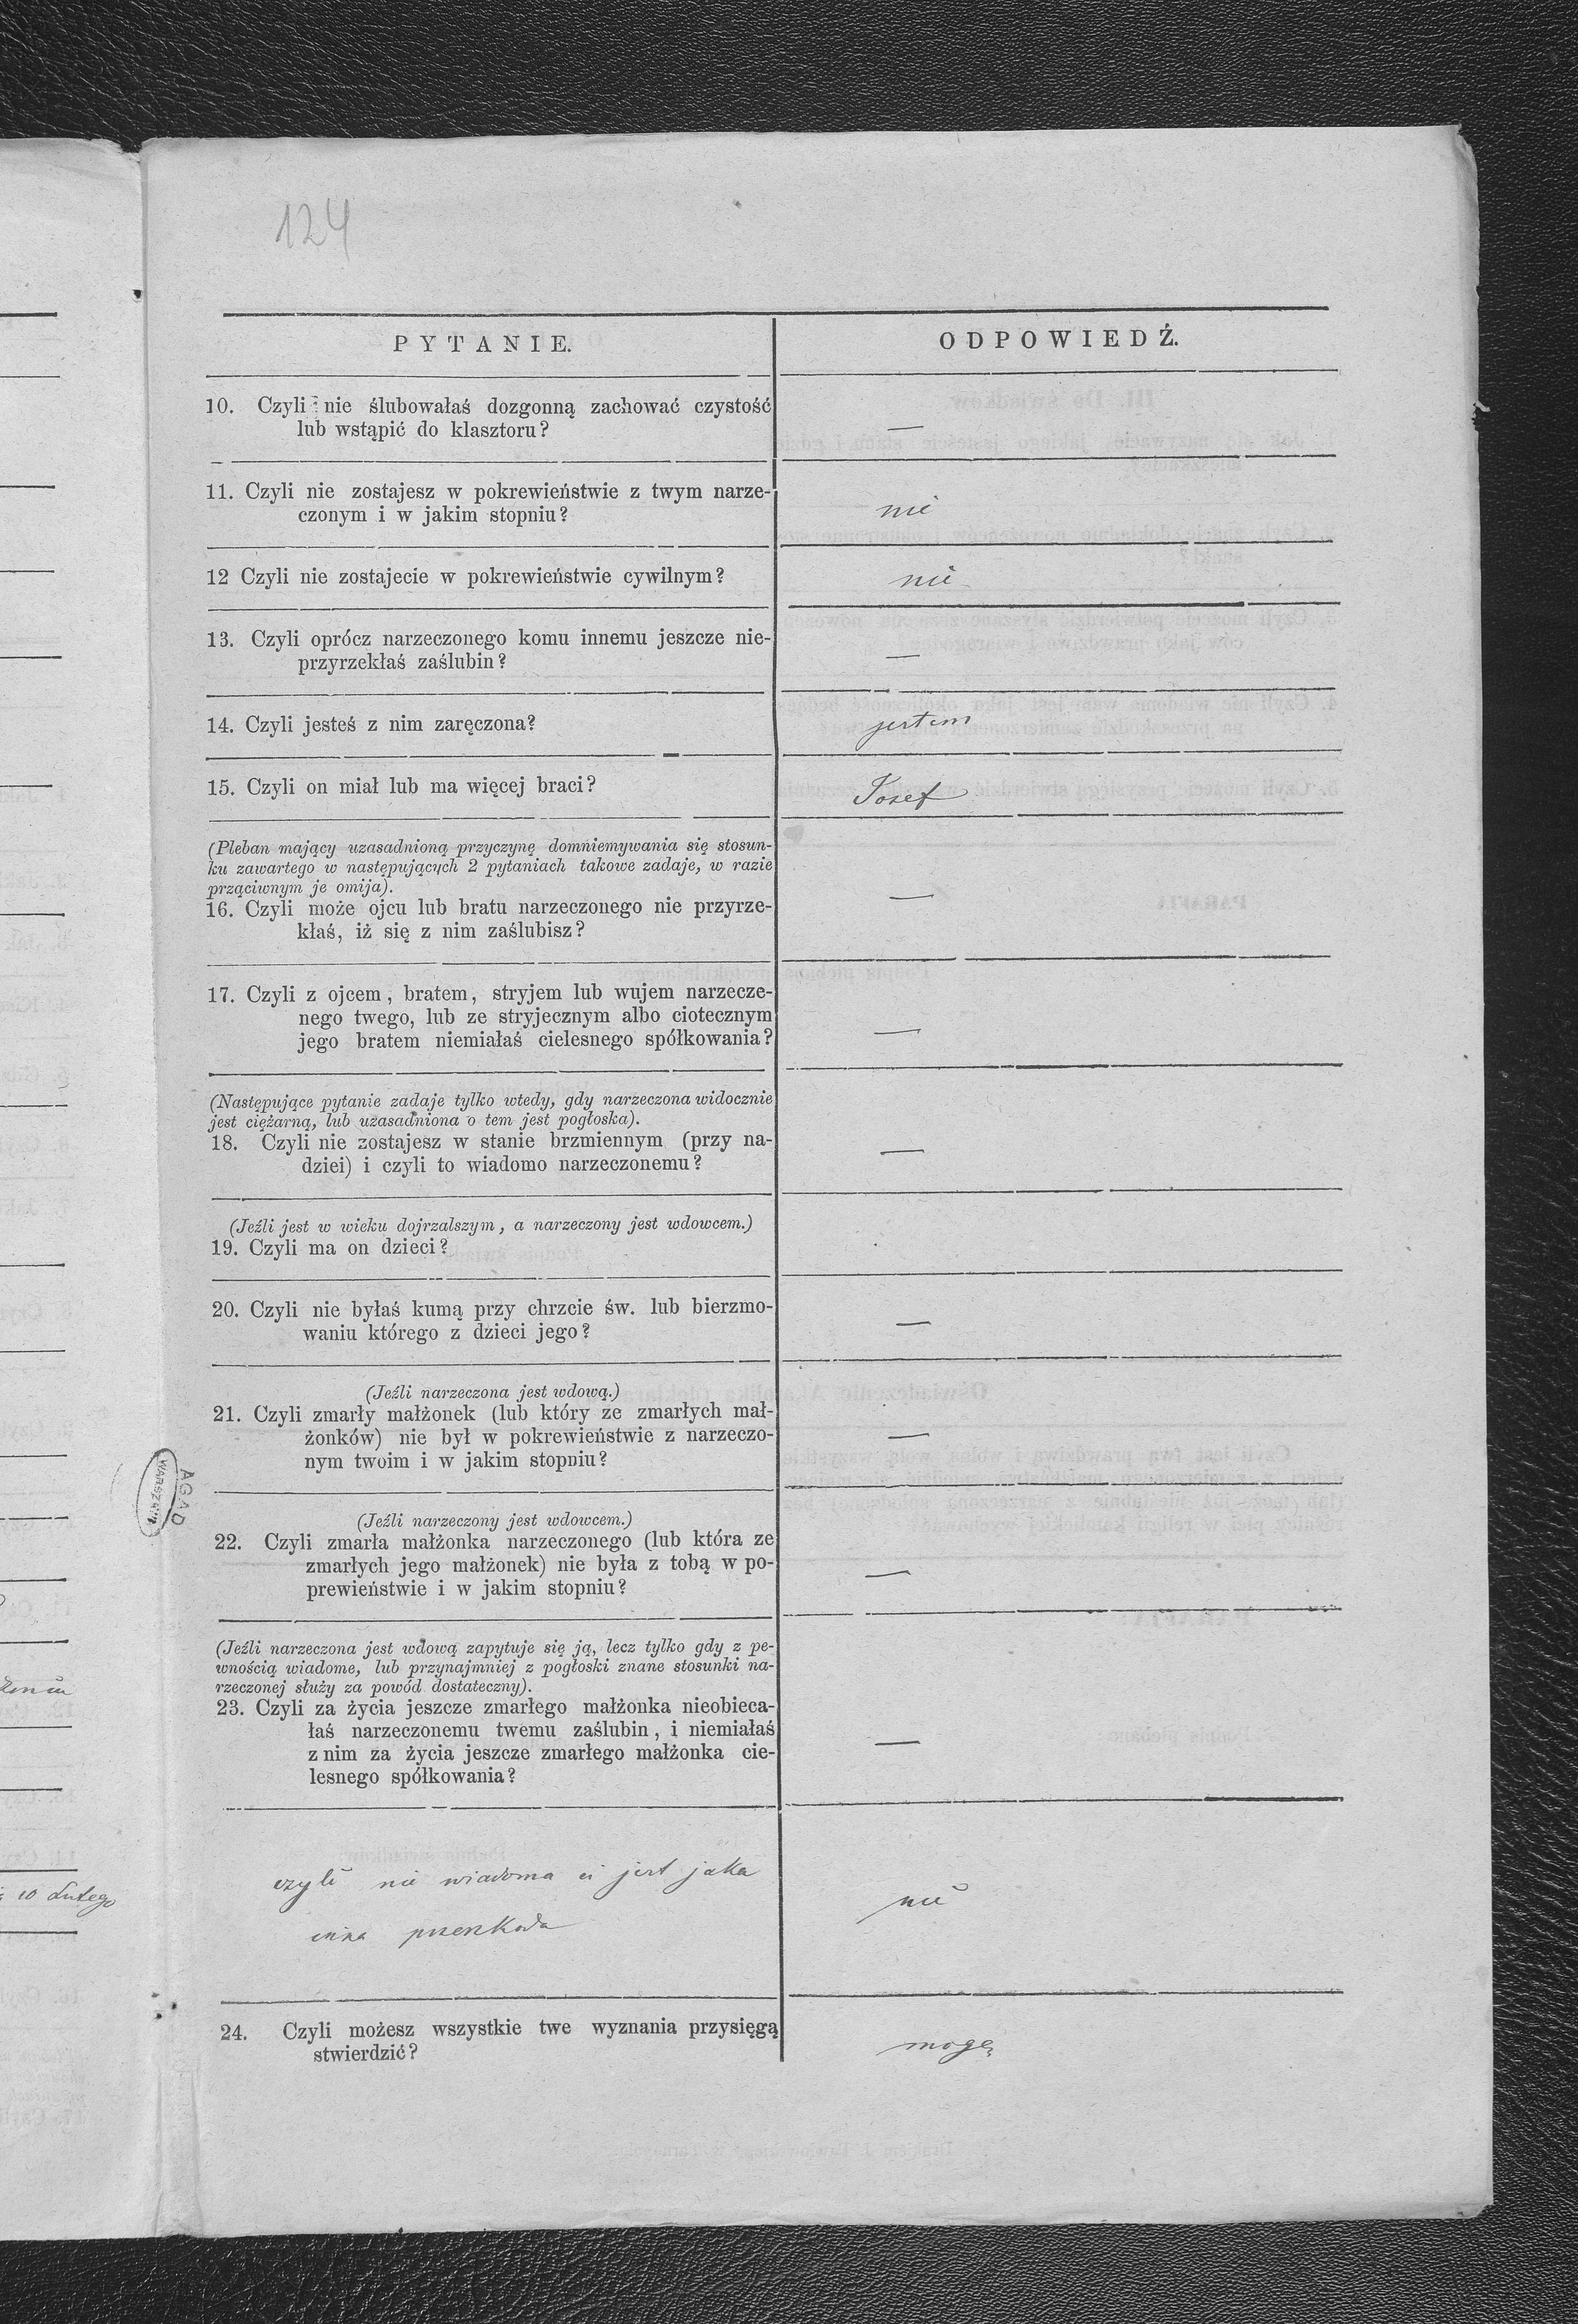 124
PYTANIE.
ODPOWIEDŹ.
10. Czyli nie ślubowałaś dozgonną zachować czystość
lub wstąpić do klasztoru?
—
11. Czyli nie zostajesz w pokrewieństwie z twym narze-
czonym i w jakim stopniu?
nie
12 Czyli nie zostajecie w pokrewieństwie cywilnym?
nie
13. Czyli oprócz narzeczonego komu innemu jeszcze nie-
przyrzekłaś zaślubin?
—
14. Czyli jesteś z nim zaręczona?
jestem
15. Czyli on miał lub ma więcej braci?
Josef
(Pleban mający uzasadnioną przyczynę domniemywania się stosun-
ku zawartego w następujących 2 pytaniach takowe zadaje, w razie
prząciwnym je omija).
16. Czyli może ojcu lub bratu narzeczonego nie przyrze-
kłaś, iż się z nim zaślubisz?
—
17. Czyli z ojcem, bratem, stryjem lub wujem narzecze-
nego twego, lub ze stryjecznym albo ciotecznym
jego bratem niemiałaś cielesnego spółkowania?
—
(Następujące pytanie zadaje tylko wtedy, gdy narzeczona widocznie
jest ciężarną, lub uzasadniona o tem jest pogłoska).
18. Czyli nie zostajesz w stanie brzmiennym (przy na-
dziei) i czyli to wiadomo narzeczonemu?
—
(Jeźli jest w wieku dojrzalszym, a narzeczony jest wdowcem.)
19. Czyli ma on dzieci?
20. Czyli nie byłaś kumą przy chrzcie św. lub bierzmo-
waniu którego z dzieci jego?
—
(Jeźli narzeczona jest wdową.)
21. Czyli zmarły małżonek (lub który ze zmarłych mał-
żonków) nie był w pokrewieństwie z narzeczo-
nym twoim i w jakim stopniu?
—
(Jeźli narzeczony jest wdowcem.)
22. Czyli zmarła małżonka narzeczonego (lub która ze
zmarłych jego małżonek) nie była z tobą w po-
prewieństwie i w jakim stopniu?
—
(Jeźli narzeczona jest wdową zapytuje się ją, lecz tylko gdy z pe-
wnością wiadome, lub przynajmniej z pogłoski znane stosunki na-
rzeczonej służy za powód dostateczny).
23. Czyli za życia jeszcze zmarłego małżonka nieobieca-
łaś narzeczonemu twemu zaślubin, i niemiałaś
z nim za życia jeszcze zmarłego małżonka cie-
lesnego spółkowania?
—
czyli nie wiadoma ci jest jaka
inna przeszkoda
nie
24. Czyli możesz wszystkie twe wyznania przysięgą
stwierdzić?
mogę
AGAD
WARSZAWA
10 Lutego